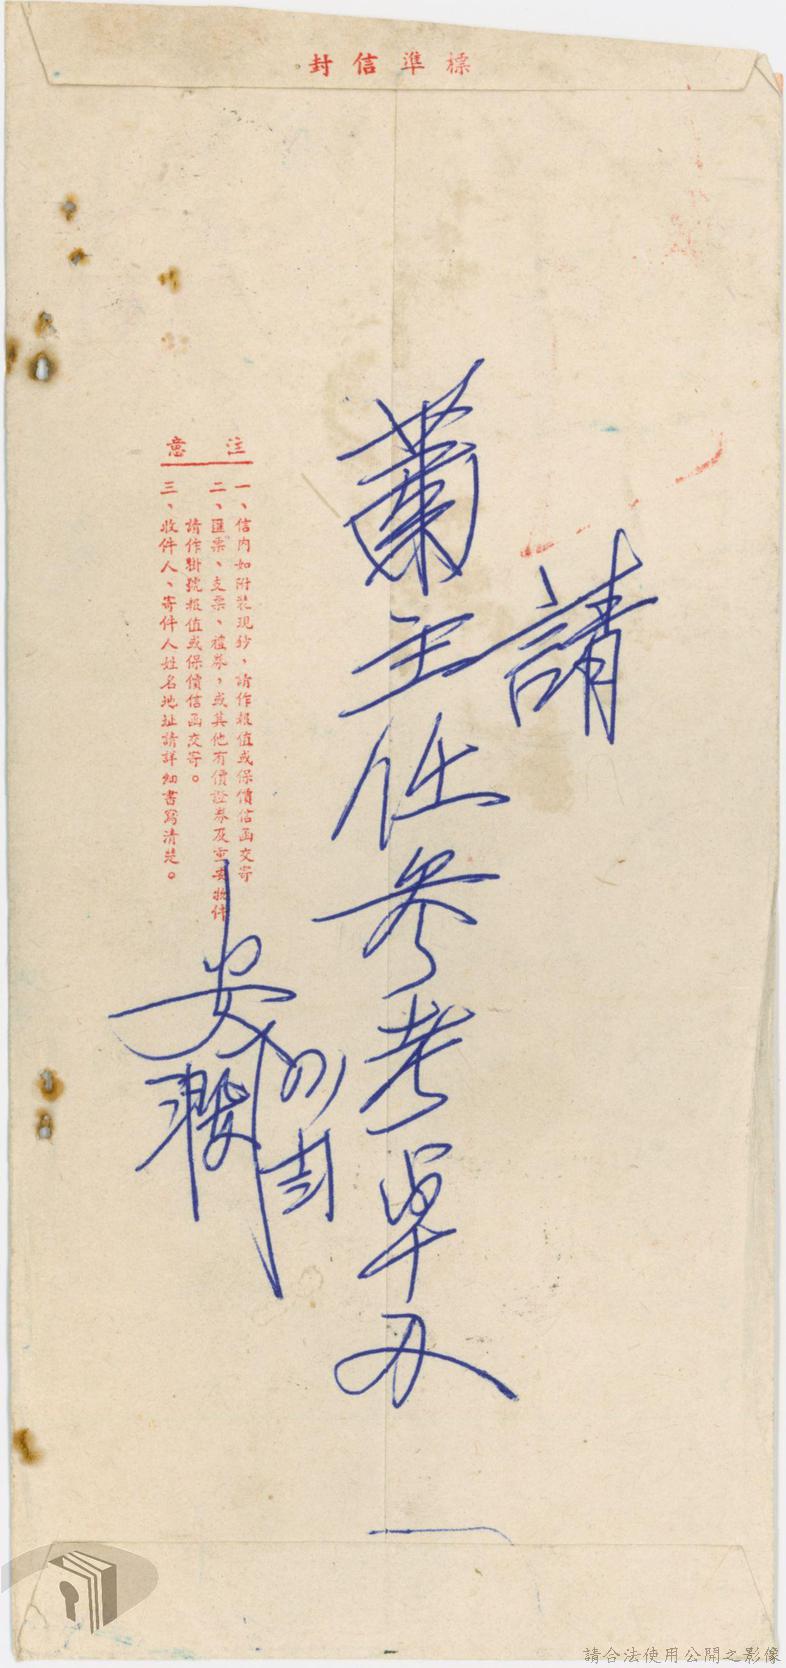 標準信封
請
蕭主任參考卓办
注意
一、信內如附裝現鈔，請作報值或保價信函交寄
二、匯票、支票、禮券，或其他有價證券及重要物件
請作掛號報值或保價信函交寄。
三、收件人、寄件人姓名地址請詳細書寫清楚。
請合法使用公開之影像